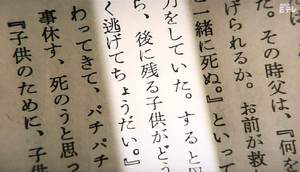 た。その時父は、『何を
げられるか。お前が救
緒に死ぬ。』といって
力をしていた。すると
ら、後に残る子供がど
く逃げてちょうだい。』
わってきて、パチパチ
事休す、死のうと思っ
『子供のために、子供
Eテレ